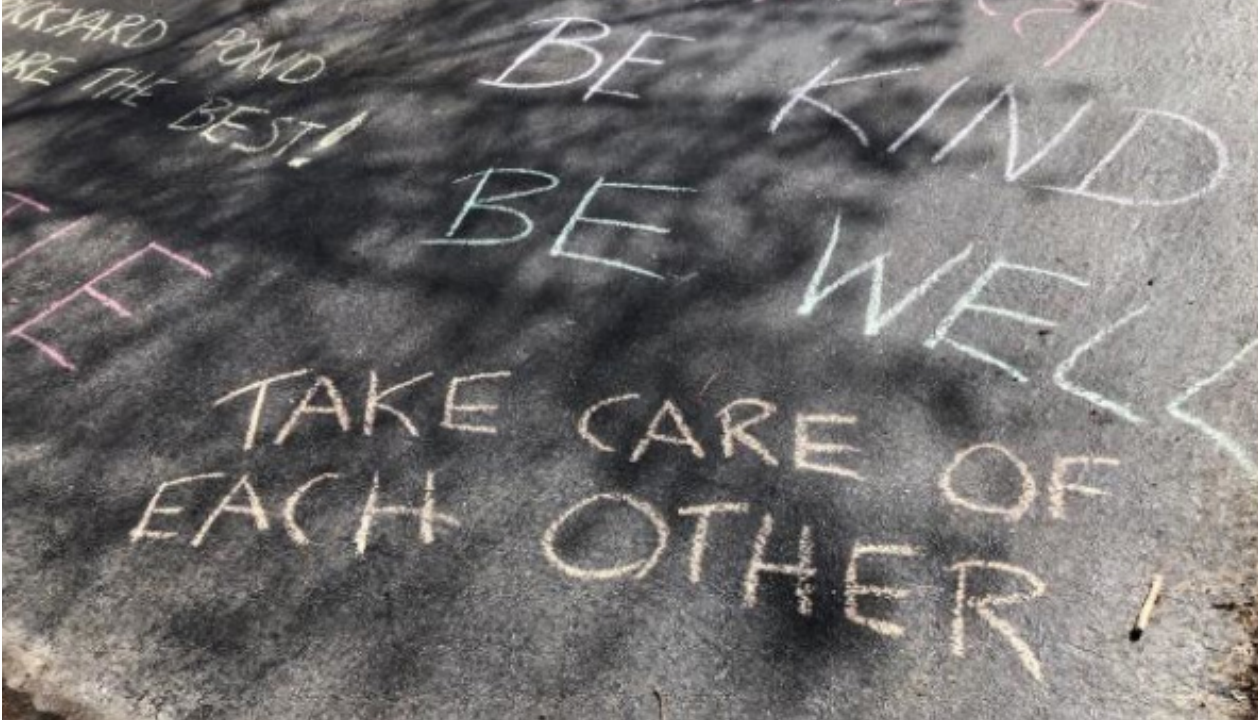 POND
ARE THE BEST!
BE KIND
BE WELL
TAKE CARE OF
EACH OTHER!